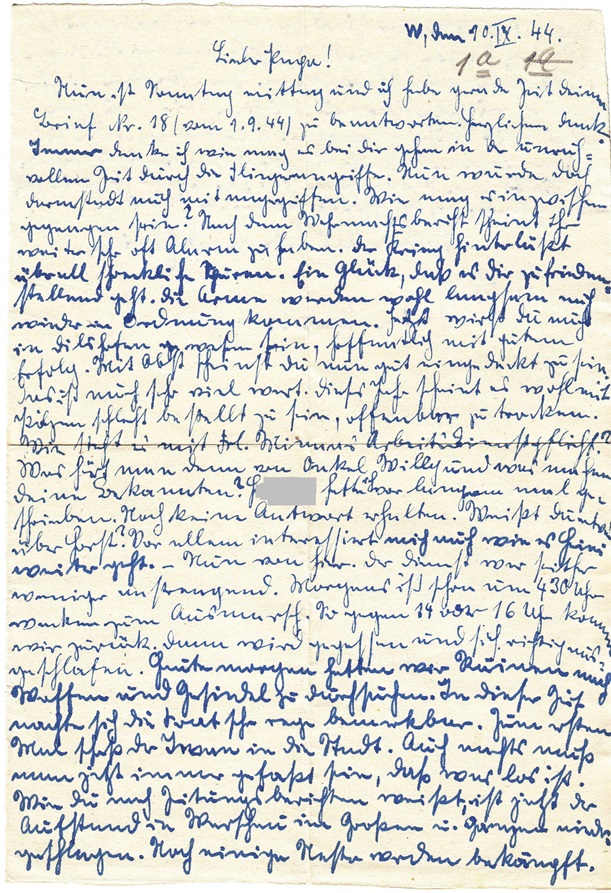 W, den 10.IX.44.
1a 1a
Lieber Papa!
Nun ist Sonntag mittag und ich habe gerade Zeit deinen
Brief Nr. 18 (vom 1.9.44) zu beantworten. Herzlichen Dank.
Immer denke ich wie mag es bei dir gehen in der unruh-
vollen Zeit durch die Fliegerangriffe. Nun wurde doch
Darmstadt auch mit angegriffen. Wie mag es inzwischen
gegangen sein? Nach dem Wehrmachtsbericht scheint ihr
weiter sehr oft Alarm zu haben. Der Krieg hinterlässt
überall schreckliche Spuren. Ein Glück, daß es dir zufrieden-
stellend geht. Die Arme werden wohl langsam auch
wieder in Ordnung kommen. Jetzt wirst du auch
in Dilshofen gewesen sein, hoffentlich mit gutem
Erfolg. Mit Obst scheinst du nun gut eingedeckt zu sein.
Das ist auch sehr viel wert. Dieses Jahr scheint es wohl mit
Pilzen schlecht bestellt zu sein, offenbar zu trocken.
Wie steht es mit Frl. Arbeitsdienstpflicht?
Was hört man denn von Onkel Willy und was machen
deine Bekannten? hatte ich vor langem mal ge-
schrieben. Noch keine Antwort erhalten. Weißt du etwas
über Horst? Vor allem interessiert mich auch wie es
weiter geht. – Nun von hier. Der Dienst war seither
weniger anstrengend. Morgens ist schon um 430 Uhr
wecken zum Ausmarsch. So gegen 14 oder 16 Uhr kommen
wir zurück. Dann wird gegessen und sich richtig aus-
geschlafen. Heute morgen hatten wir Ruinen nach
Waffen und Gesindel zu durchsuchen. In dieser Zeit
machte sich die sehr rege bemerkbar. Zum ersten
Mal schoß der Iwan in die Stadt. Auch nachts muß
man jetzt immer gefaßt sein, daß was los ist.
Wie du nach Zeitungsberichten weißt, ist jetzt der
Aufstand in Warschau im Großen u. Ganzen nieder-
geschlagen. Noch einige Nester werden bekämpft.